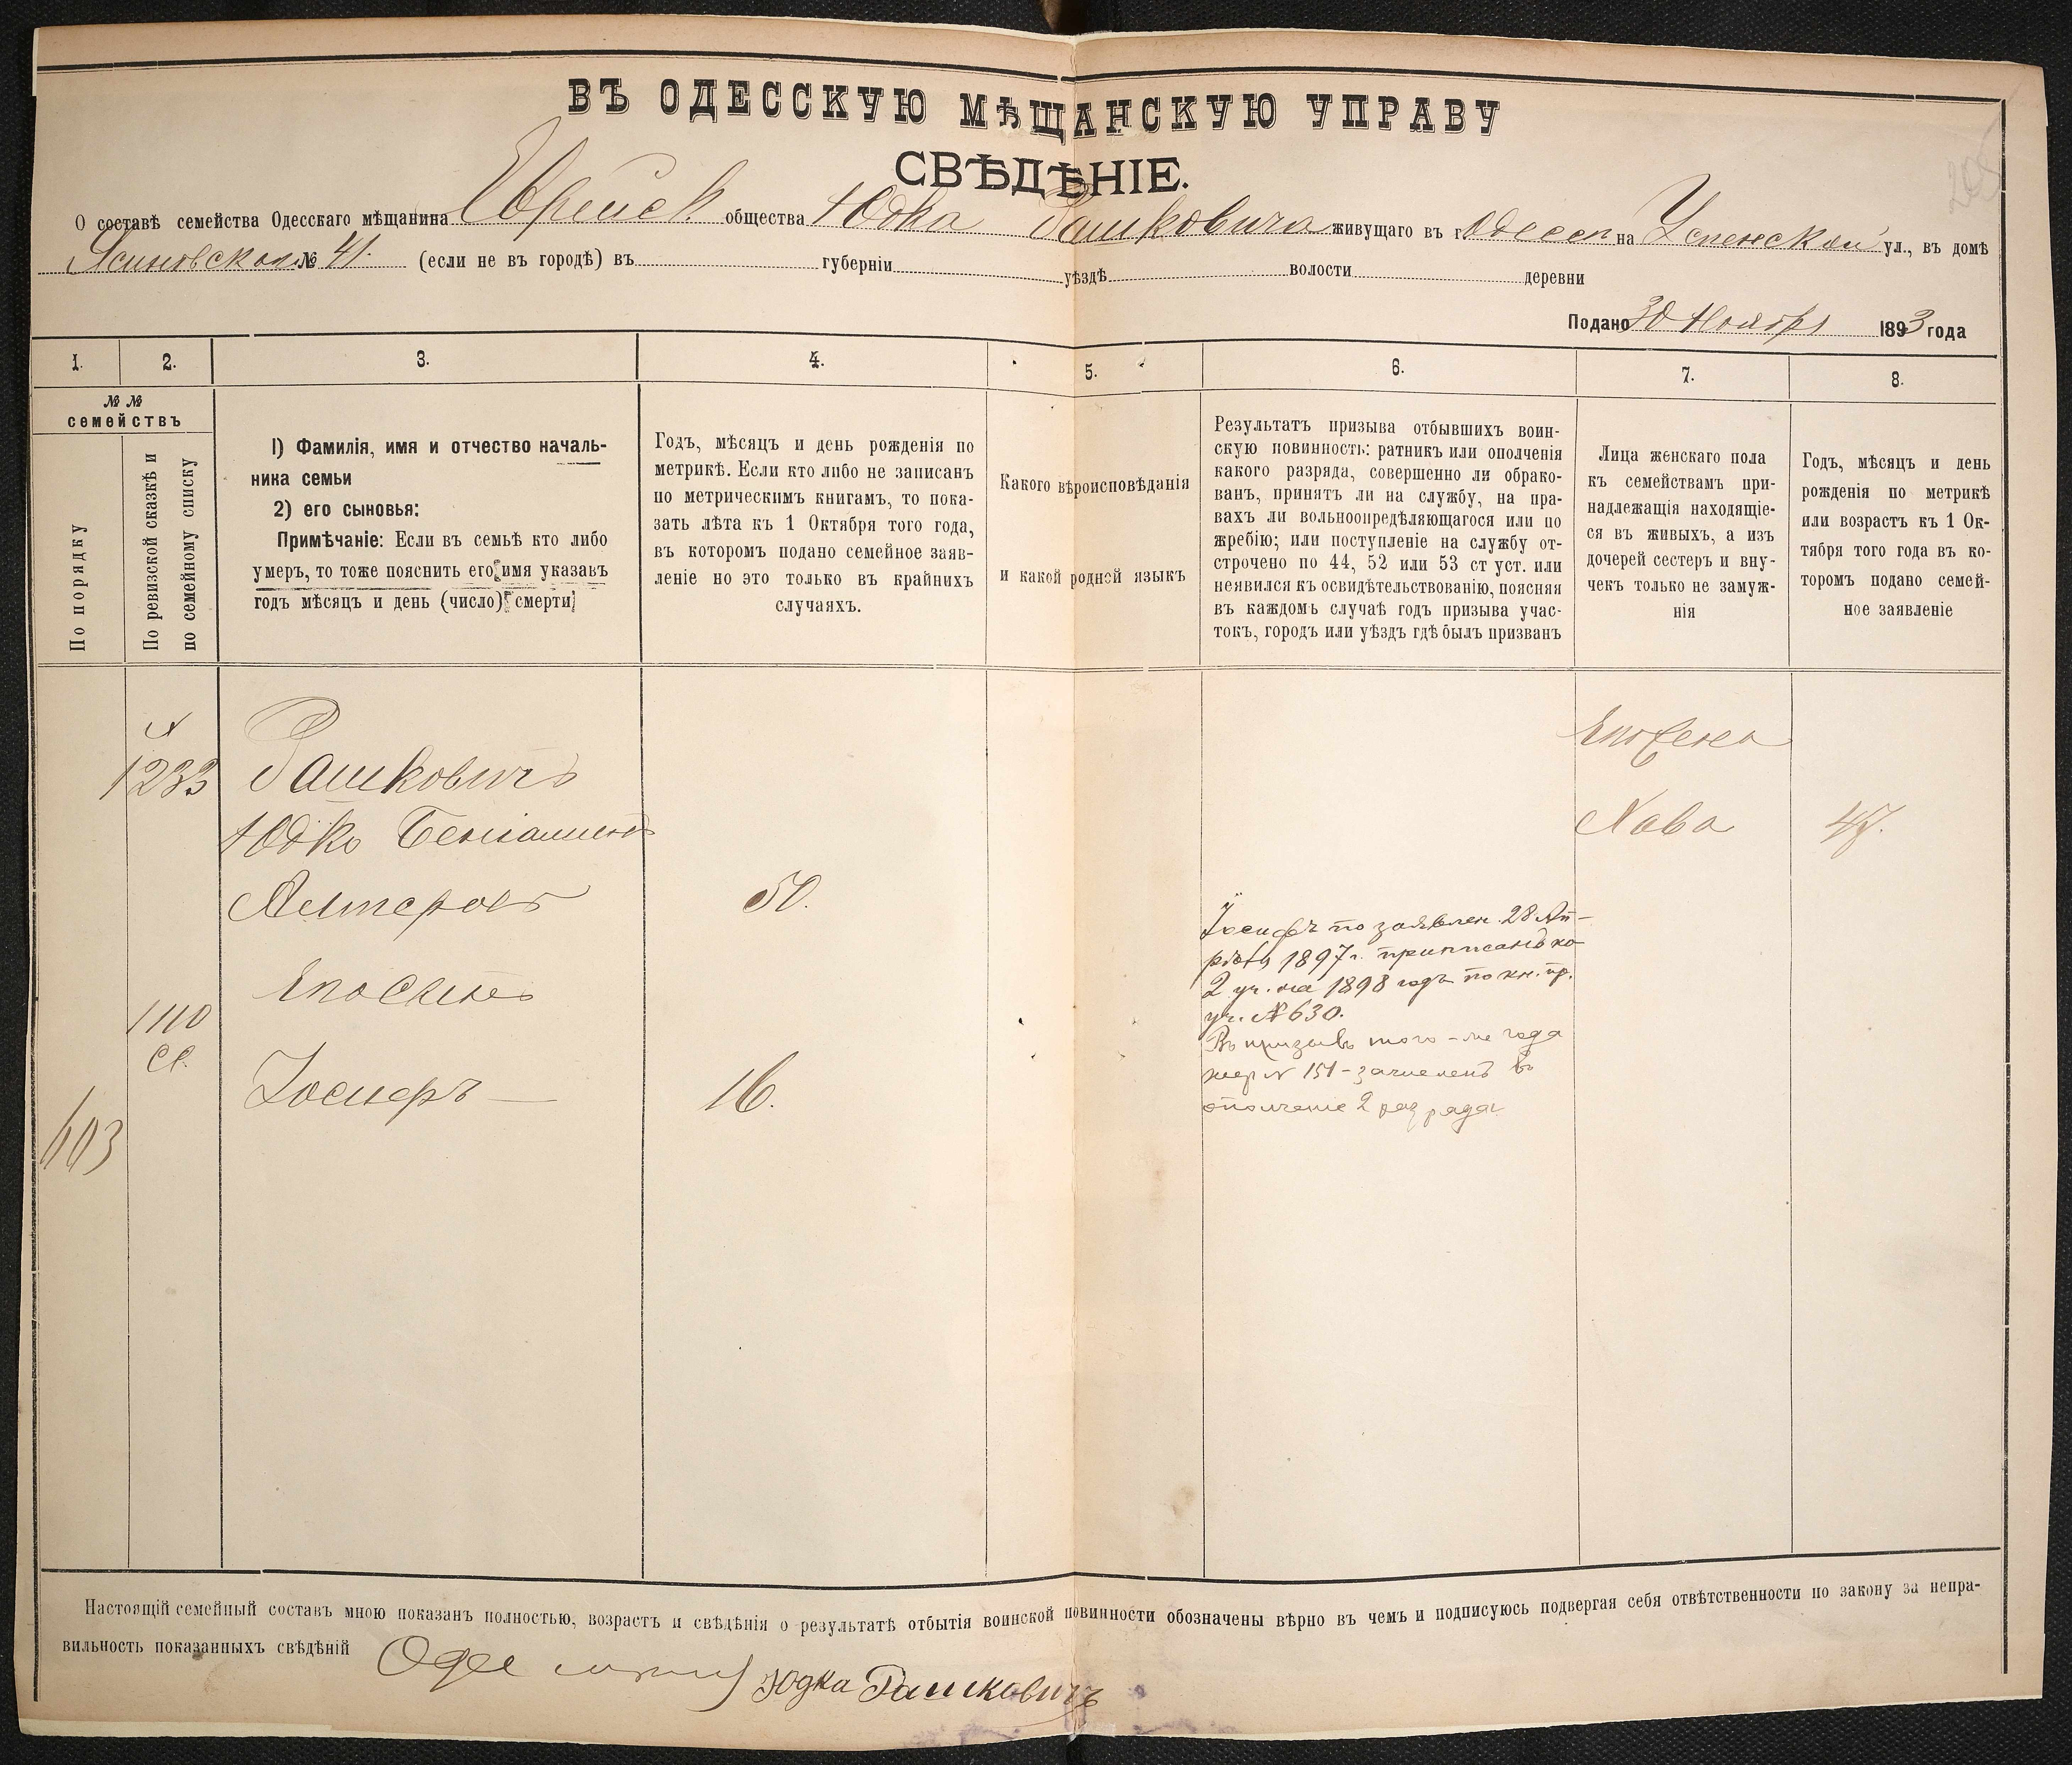 205
ВЪ ОДЕССКУЮ МѢЩАНСКУЮ УПРАВУ
СВѢДѢНІЕ.
О составѣ семейства Одесскаго мѣщанина Еврейск общества Юдка Рашковича живущаго въ г Одессѣ на Успенской ул., въ домѣ
Ясиновской № 41. (если не въ городѣ) въ губерніи уѣздѣ волости деревни
Подано 30 Ноября 1893 года
1. 2. 3. 4. 5. 6. 7. 8.
№ №
семействъ
По порядку
По ревизской сказкѣ и
по семейному списку
1) Фамилія, имя и отчество началь-
ника семьи
2) его сыновья:
Примѣчаніе: Если въ семьѣ кто либо
умеръ, то тоже пояснить его имя указавъ
годъ мѣсяцъ и день (число) смерти
Годъ, мѣсяцъ и день рожденія по
метрикѣ. Если кто либо не записанъ
по метрическимъ книгамъ, то пока-
зать лѣта къ 1 Октября того года,
въ которомъ подано семейное заяв-
леніе но это только въ крайнихъ
случаяхъ.
Какого вѣроисповѣданія
и какой родной языкъ
Результатъ призыва отбывшихъ воин-
скую повинность: ратникъ или ополченія
какого разряда, совершенно ли обрако-
ванъ, принятъ ли на службу, на пра-
вахъ ли вольноопредѣляющагося или по
жребію; или поступленіе на службу от-
строчено по 44, 52 или 53 ст уст. или
неявился къ освидѣтельствованію, поясняя
въ каждомъ случаѣ годъ призыва учас-
токъ, городъ или уѣздъ гдѣ былъ призванъ
Лица женскаго пола
къ семействамъ при-
надлежащія находящіе-
ся въ живыхъ, а изъ
дочерей сестеръ и вну-
чекъ только не замуж-
нія
Годъ, мѣсяцъ и день
рожденія по метрикѣ
или возрастъ къ 1 Ок-
тября того года въ ко-
торомъ подано семей-
ное заявленіе
1233
Рашковичъ
Юдко Беніаминъ
Алтеровъ
50.
Его сынъ
1110
Св.
Іосифъ —
16.
603
Іосифъ по заявлен. 28 Ап-
рѣля 1897 г. приписанъ ко
2 уч. на 1898 годъ по кн. пр.
уч. № 630.
Въ призывъ того-же года
жер № 151 - зачисленъ въ
ополченіе 2 разряда
Его жена
Хава
47.
Настоящій семейный составъ мною показанъ полностью, возрастъ и свѣдѣнія о результатѣ отбытія воинской повинности обозначены вѣрно въ чемъ и подписуюсь подвергая себя отвѣтственности по закону за непра-
вильность показанныхъ свѣдѣній Одес
Юдка Рашковичъ